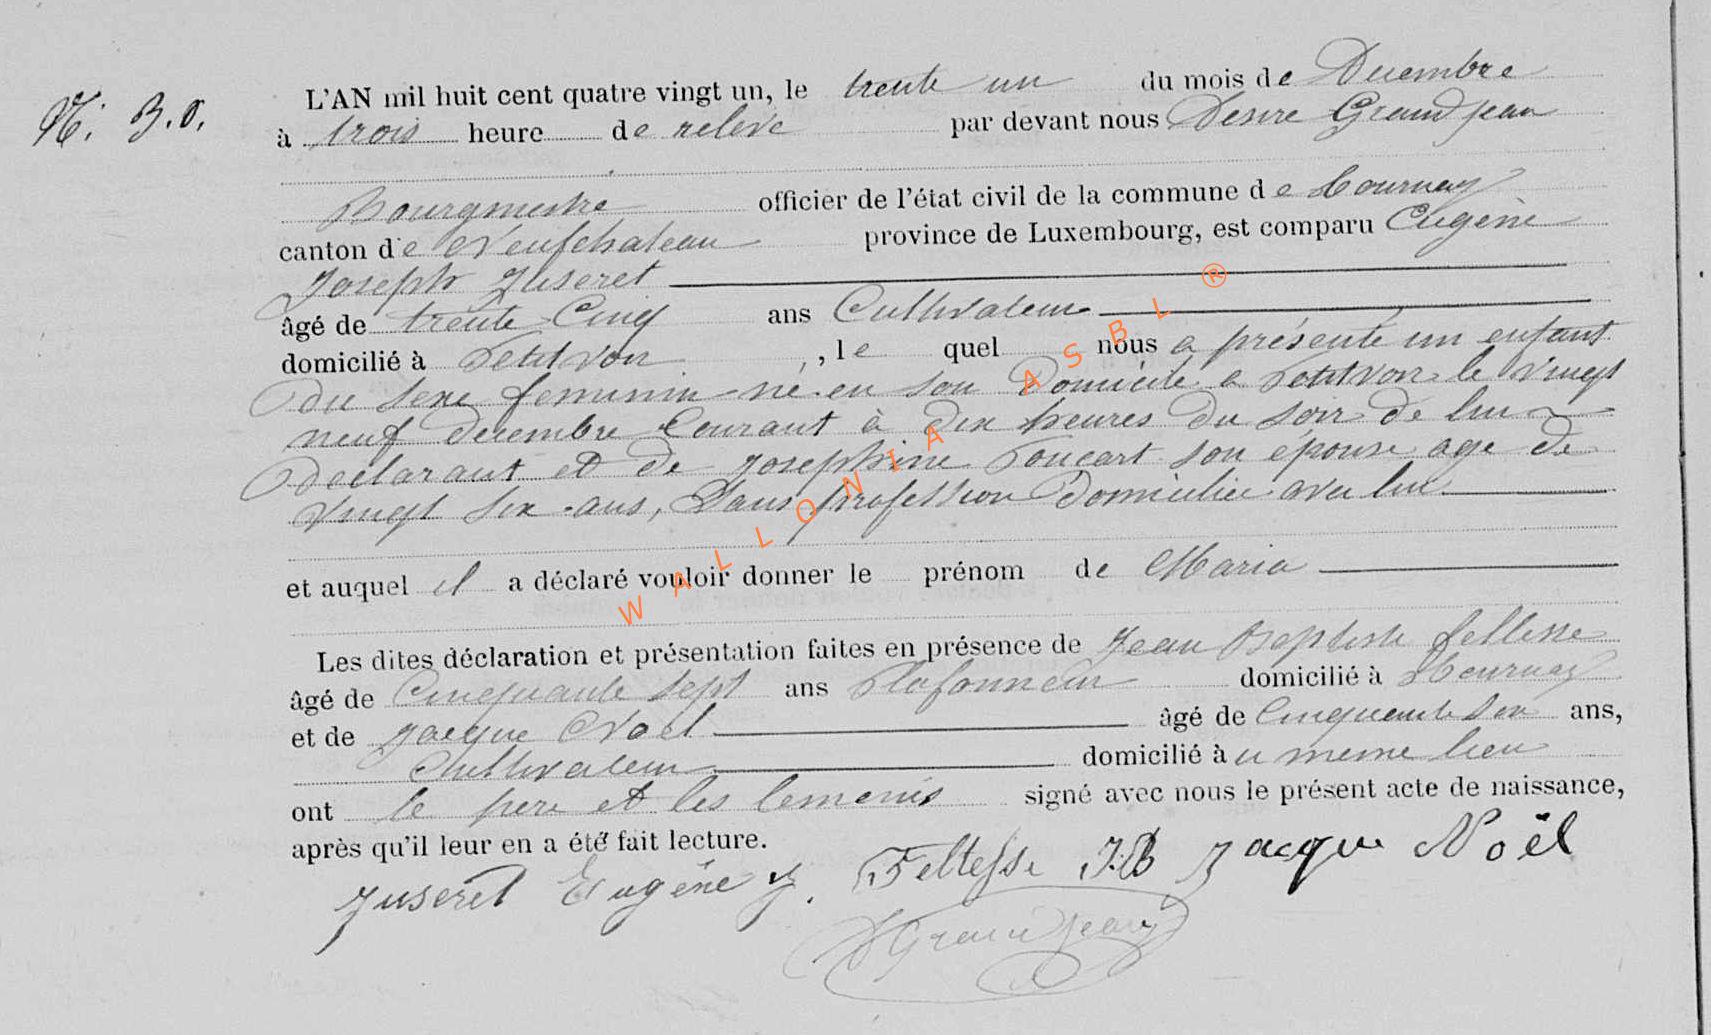 N. 30.
L'AN mil huit cent quatre vingt un, le trente un du mois de Decembre
à trois heure de relevé par devant nous Desire Grandjean
Bourgmestre officier de l'état civil de la commune de Tournay
canton de Neufchateau province de Luxembourg, est comparu Eugène
Joseph Juseret
âgé de trente Cinq ans Cultivateur
domicilié à Petitvoir, le quel nous a présenté un enfant
du sexe feminin né en son Domicile a Petitvoir le vingt
neuf decembre Courant à dix heures du soir de lui
declarant et de Josephine Poncart son épouse agé de
vingt six ans, Sans profession Domiciliée avec lui
et auquel il a déclaré vouloir donner le prénom de Maria
Les dites déclaration et présentation faites en présence de Jean Baptiste feltesse
âgé de Cinquante sept ans Plafonneur domicilié à Tournay
et de Jacque Noël âgé de Cinquante six ans,
Cultivateur domicilié à u meme lieu
ont le pere et les temoins signé avec nous le présent acte de naissance,
après qu'il leur en a été fait lecture.
Juseret Eugène J. Feltesse J.B Jacque Noël
D Grandjean
WALLONIA ASBL ®